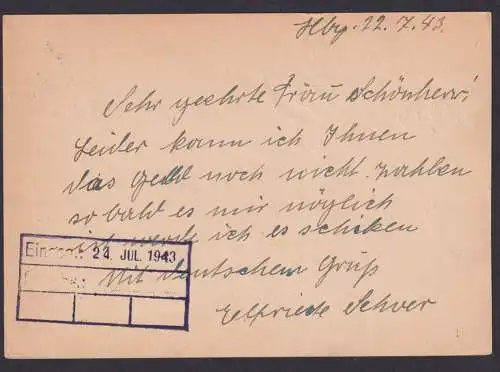 Hbg. 22.7.43.
Sehr geehrte Frau Schönherr!
Leider kann ich Ihnen
das Geld noch nicht zahlen
so bald es mir möglich
ist werde ich es schiken
Eingeg. 24. JUL. 1943
Mit deutschem Gruß
Elfriede